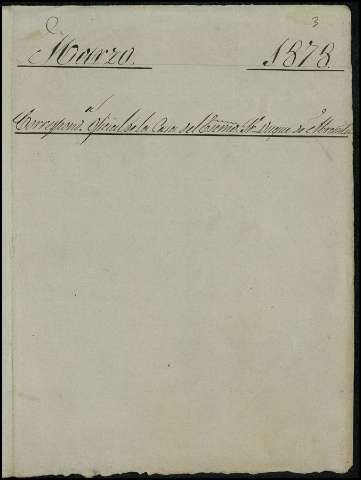 3
Marzo. 1878.
Correspond.a oficial de la Casa del Excmo. Sr. Duque de